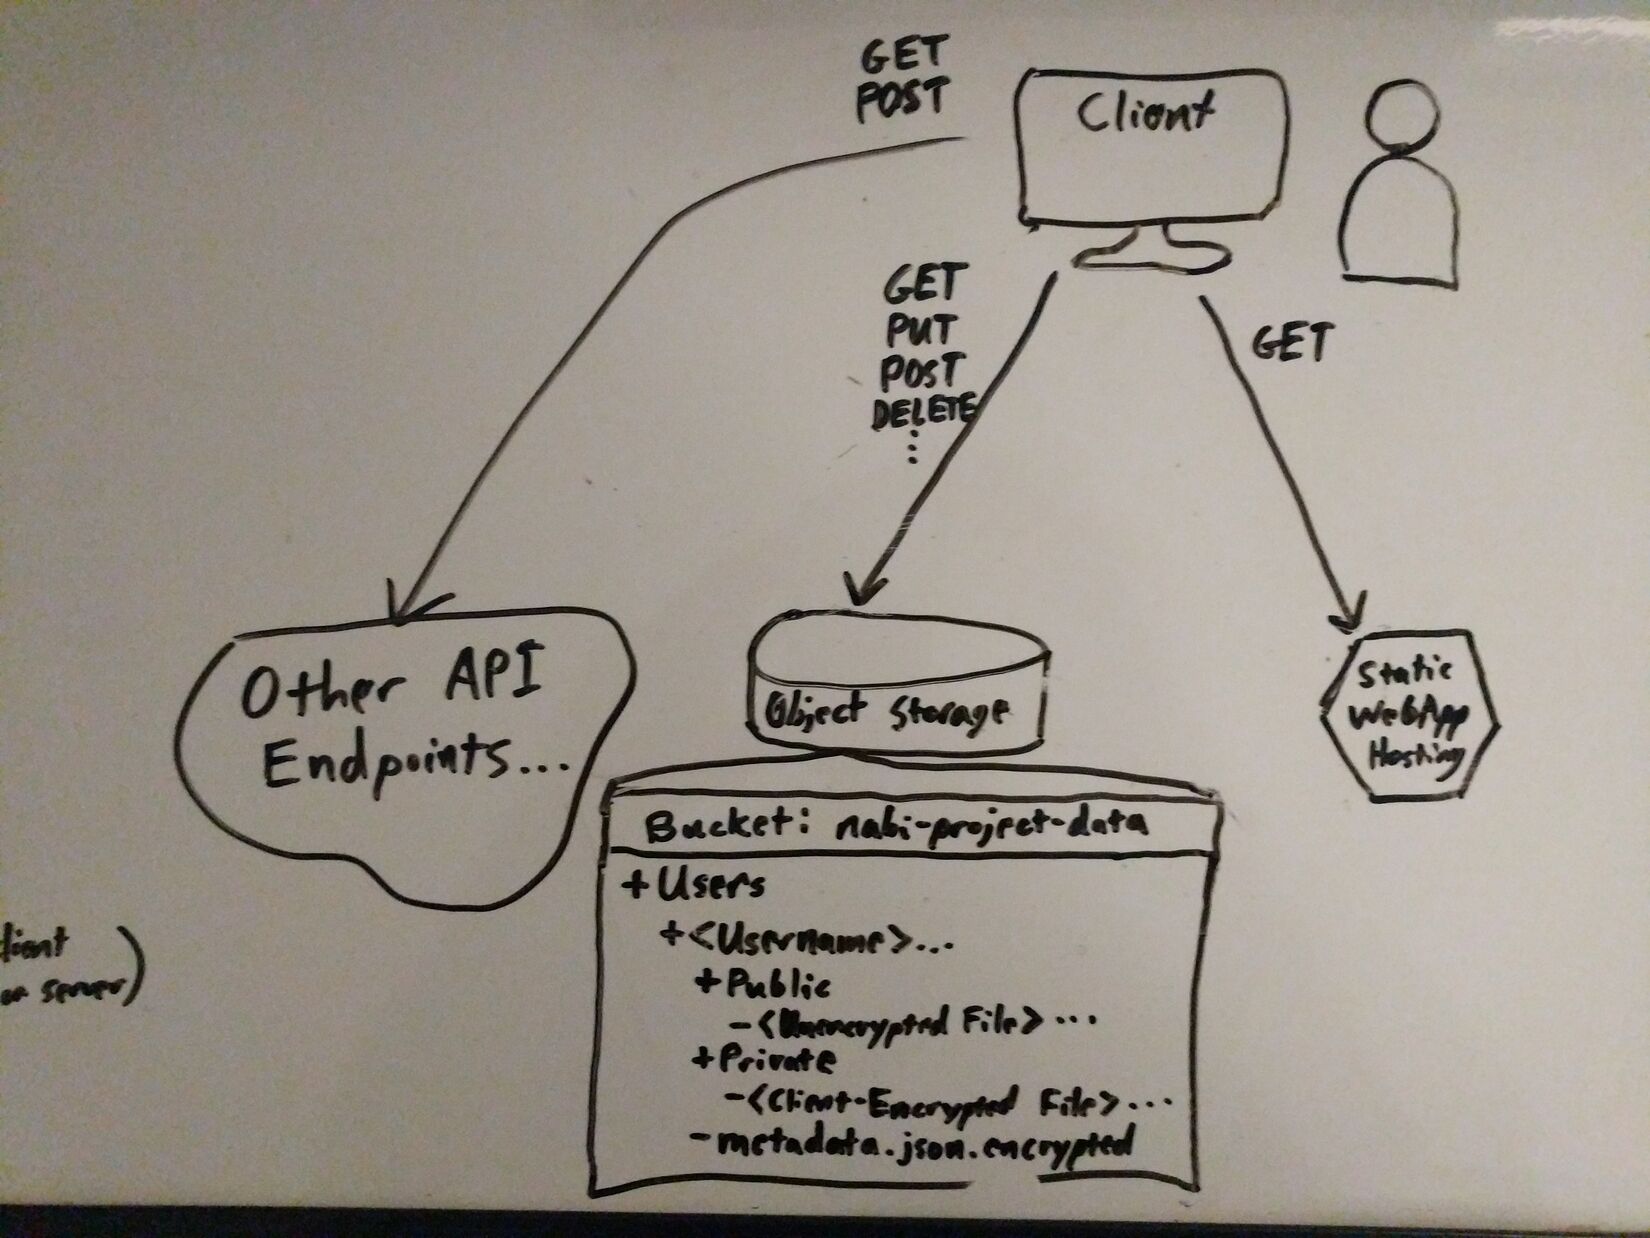 GET
POST
Client
GET
PUT
POST
DELETE
⋮
GET
Other API
Endpoints...
Object Storage
Static
WebApp
Hosting
Bucket: nabi-project-data
+Users
+<Username>...
+Public
-<Unencrypted File>...
+Private
-<Client-Encrypted File>...
-metadata.json.encrypted
lient
server)